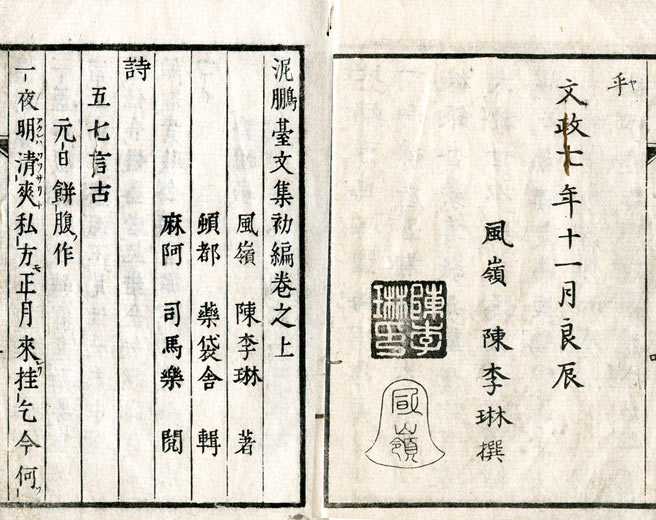 乎ヤ
文政七年十一月良辰
風嶺 陳李琳撰
陳李琳印
風嶺
泥鵬臺文集初編卷之上
風嶺 陳李琳 著
頓都 藥袋舎 輯
麻阿 司馬樂 閲
詩
五七言古
元日餅腹作
一夜明清爽私方正月來挂乞今何